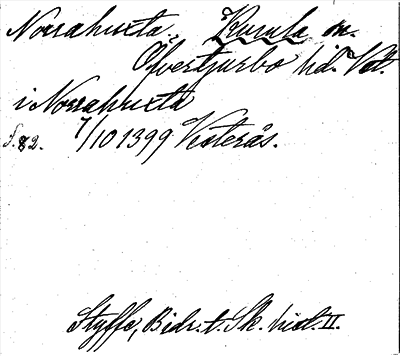 Norrahuxta, Kusula sn.
Öfvertjurbo hd. Vstl.
i Norrahuxta
s. 82. 7/10 1399 Vesterås.
Styffe, Bidr. t. Sk. hist. II.